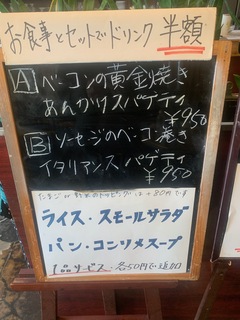 お食事とセットでドリンク 半額
A ベーコンの黄金焼き
あんかけスパゲティ
¥950
B ソーセージのベーコン巻き
イタリアンスパゲティ
¥950
ライス・スモールサラダ
パン・コンソメスープ
1品サービス 各50円で追加